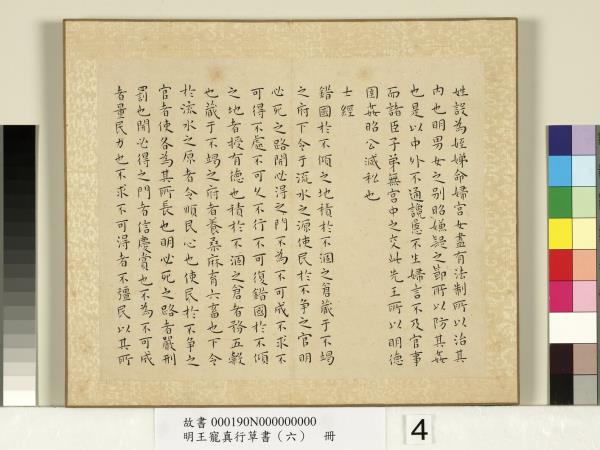 姓設為姪娣命婦宮女盡有法制所以治其
內也明男女之別昭嫌疑之節所以防其姦
也是以中外不通讒慝不生婦言不及官事
而諸臣子弟無宮中之交此先王所以明德
圉姦昭公滅私也
士經
錯國於不傾之地積於不涸之倉藏于不竭
之府下令于流水之源使民於不爭之官明
必死之路開必得之門不為不可成不求不
可得不處不可久不行不可復錯國於不傾
之地者授有德也積於不涸之倉者務五穀
也藏于不竭之府者養桑麻育六畜也下令
於流水之原者令順民心也使民於不爭之
官者使各為其所長也明必死之路者嚴刑
罰也開必得之門者信慶賞也不為不可成
者量民力也不求不可得者不彊民以其所
故書 000190N000000000
明王寵真行草書（六） 冊
4